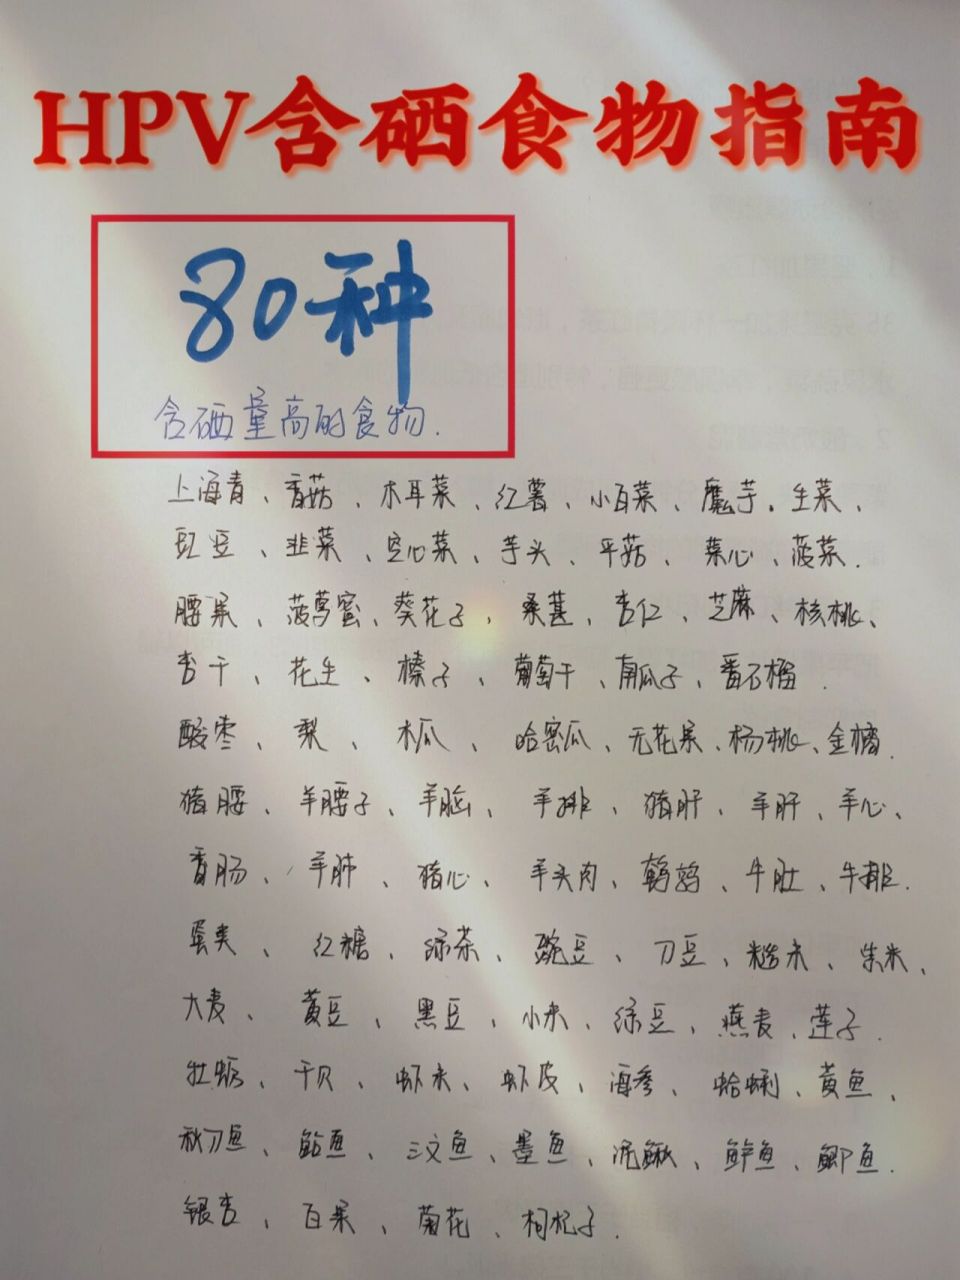 HPV含硒食物指南
80种
含硒量高的食物.
上海青、香菇、木耳菜、红薯、小白菜、魔芋。生菜、
豇豆、韭菜、空心菜、芋头、平菇、菜心、菠菜.
腰果、菠萝蜜、葵花子、桑葚、杏仁、芝麻、核桃、
杏干、花生、榛子、葡萄干、南瓜子、番石榴.
酸枣、梨、木瓜、哈密瓜、无花果、杨桃、金橘.
猪腰、羊腰子、羊脑、羊排、猪肝、羊肝、羊心、
香肠、羊肺、猪心、羊头肉、鹌鹑、牛肚、牛排.
蛋类、红糖、绿茶、豌豆、刀豆、糙米、
大麦、黄豆、黑豆、小米、绿豆、燕麦、莲子.
牡蛎、干贝、虾米、虾皮、海参、蛤蜊、黄鱼、
秋刀鱼、鲐鱼、三文鱼、墨鱼、泥鳅、鲈鱼、鲫鱼.
银杏、百果、菊花、枸杞子.